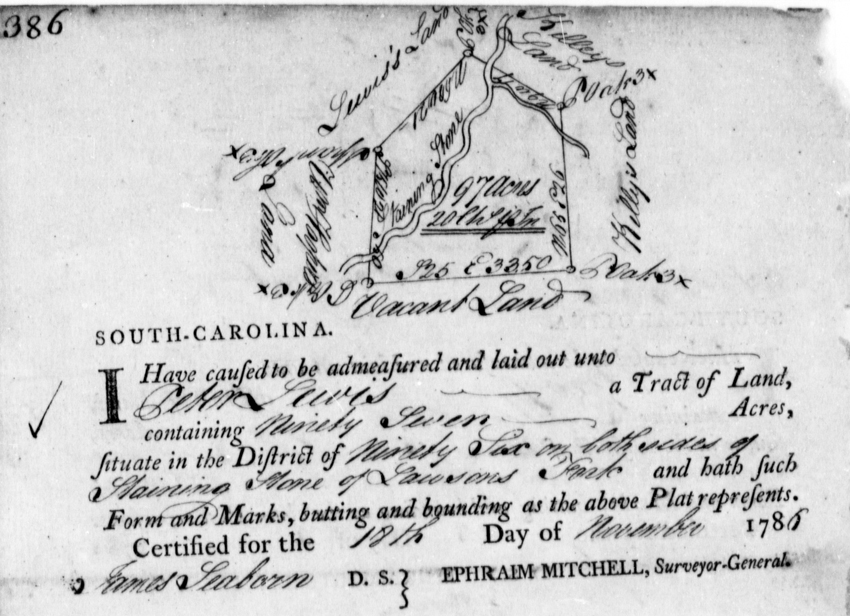 386
Lewis's Land
Kelleys
Land
Oak 3x
Staining Stone
97 Acres
Kelly's Land
S 25 E 33.50
P Oak 3x
Vacant Land
SOUTH-CAROLINA.
I Have cauſed to be admeaſured and laid out unto
Peter Lewis a Tract of Land,
containing Ninety Seven Acres,
ſituate in the Diſtrict of Ninety Six on both sides of
Staining Stone of Lawsons Fork and hath ſuch
Form and Marks, butting and bounding as the above Plat repreſents.
Certified for the 18th Day of November 1786
James Seaborn D. S. } EPHRAIM MITCHELL, Surveyor-General.